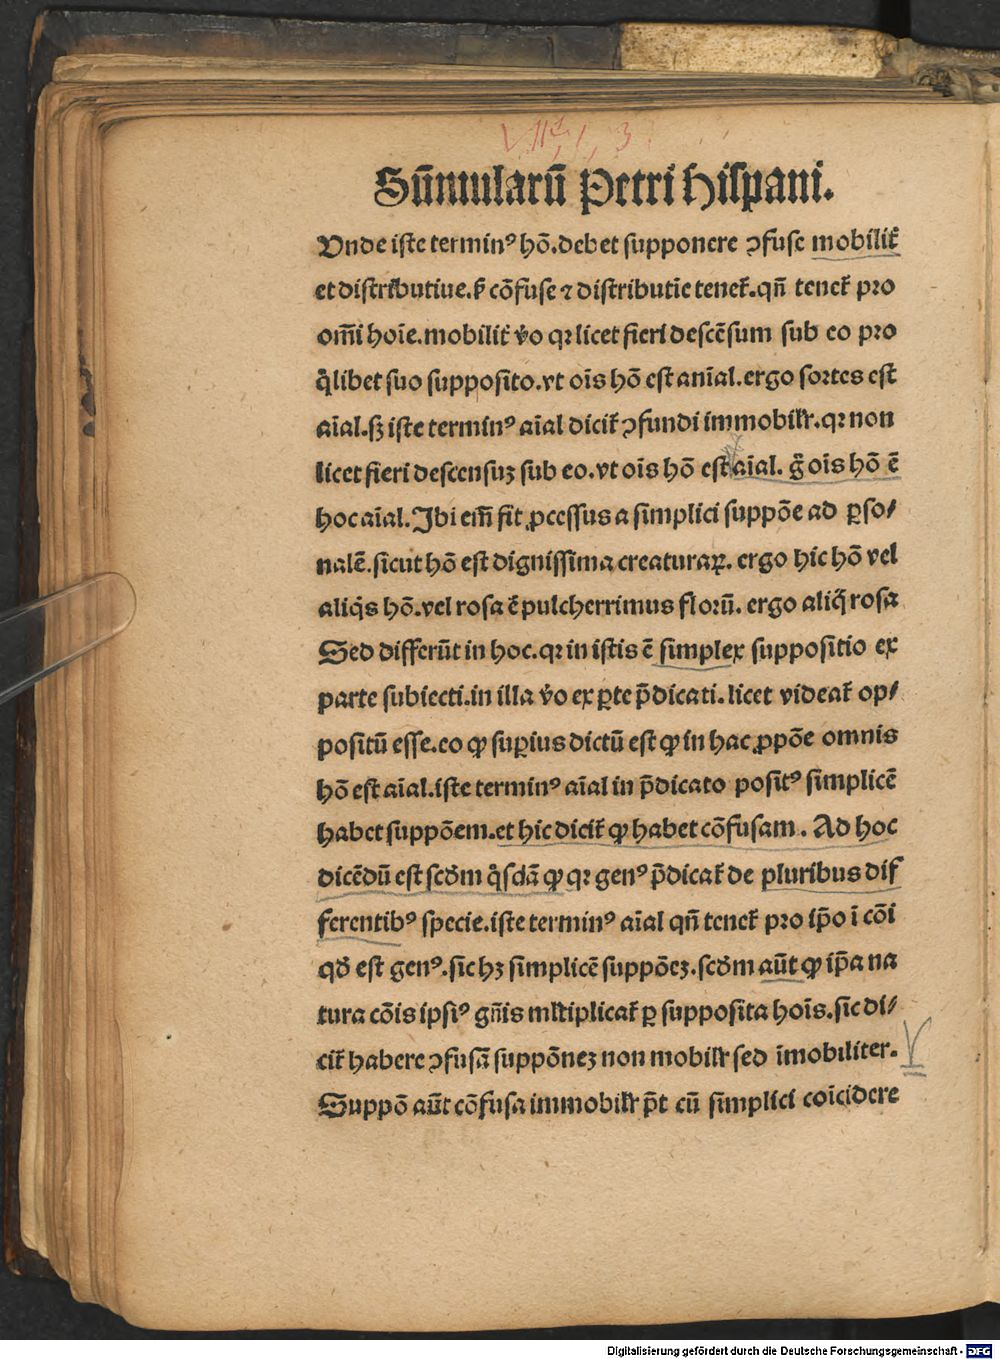 VIIa, 1, 3.
Sūmularū Petri hiſpani.
Vnde iſte terminꝰ hō.debet ſupponere ꝯfuſe mobilit̄
et diſtributiue.ꝓ̄ cōfuſe ⁊ diſtributīe tenet̄.qn̄ tenet̄ pꝛo
om̄i hoīe.mobilit̄ v̄o qꝛ licet fieri deſcēſum ſub eo pꝛo
q̄libet ſuo ſuppoſito.vt oīs hō eſt anīal.ergo ſoꝛtes eſt
aīal.ſꝫ iſte terminꝰ aīal dicit̄ ꝯfundi immobilr̄.qꝛ non
licet fieri deſcenſuꝫ ſub eo.vt oīs hō eſt aīal. g̊ oīs hō ē
hoc aīal.Ibi em̄ fit ꝓceſſus a ſimplici ſuppōe ad ꝑſo/
nalē.ſicut hō eſt digniſſima creaturaꝝ. ergo hic hō vel
aliq̇s hō.vel roſa ē pulcherrimus floꝛū. ergo aliq̄ roſa
Sed differūt in hoc.qꝛ in iſtis ē ſimplex ſuppoſitio ex
parte ſubiecti.in illa v̄o ex ꝑte p̄dicati.licet videat̄ op/
poſitū eſſe.eo ꝙ ſuꝑius dictū eſt ꝙ in hac ꝓpōe omnis
hō eſt aīal.iſte terminꝰ aīal in p̄dicato poſitꝰ ſimplicē
habet ſuppōem.et hic dicit̄ ꝙ habet cōfuſam. Ad hoc
dicēdū eſt ſcd̄m q̊ſdā ꝙ qꝛ genꝰ p̄dicat̄ de pluribus dif
ferentibꝰ ſpecie.iſte terminꝰ aīal qn̄ tenet̄ pꝛo ip̄o ī cōi
qd̄ eſt genꝰ.ſic hꝫ ſimplicē ſuppōeꝫ.ſcd̄m aūt ꝙ ip̄a na
tura cōis ipſiꝰ gn̄is ml̄tiplicat̄ ꝑ ſuppoſita hoīs.ſic di/
cit̄ habere ꝯfuſā ſuppōneꝫ non mobilr̄ ſed īmobiliter.
Suppō aūt cōfuſa immobilr̄ p̄t cū ſimplici coīcidere
Digitalisierung gefördert durch die Deutsche Forschungsgemeinschaft - DFG